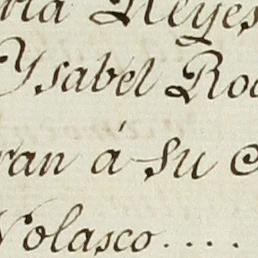 Reyes
Ysabel Ro
ran á su
Nolasco....